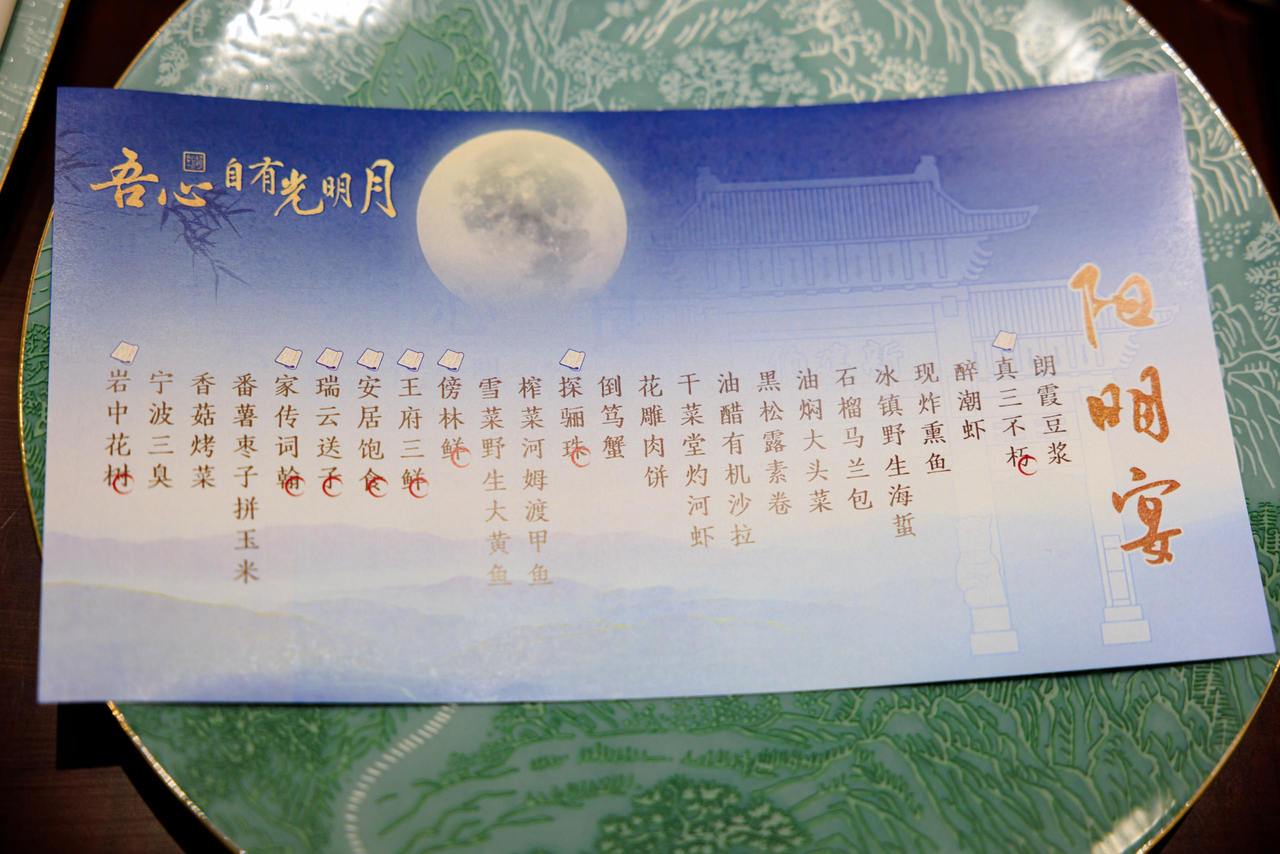 吾心自有光明月
阳明宴
朗霞豆浆
真三不朽
醉潮虾
现炸熏鱼
冰镇野生海蜇
石榴马兰包
油焖大头菜
黑松露素卷
油醋有机沙拉
干菜堂灼河虾
花雕肉饼
倒笃蟹
探骊珠
榨菜河姆渡甲鱼
雪菜野生大黄鱼
傍林鲜
王府三鲜
安居饱食
瑞云送子
家传词翰
番薯枣子拼玉米
香菇烤菜
宁波三臭
岩中花树